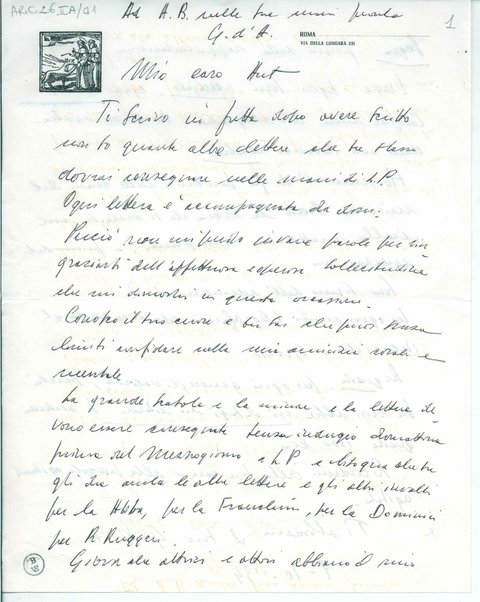 ARC26.IA/01
Ad A. B. nelle sue mani
G. d'A.
1
ROMA
VIA DELLA LUNGARA 231
Mio caro
Ti scrivo in fretta dopo avere scritto
non so quante altre lettere che tu stesso
dovrai consegnare nelle mani di L.P.
Ogni lettera è accompagnata da doni.
Perciò non mi perdo in vane parole per rin
graziarti dell'affettuosa e operosa sollecitudine
che mi dimostri in questa occasione.
Conosco il tuo cuore e tu sai che puoi senza
limiti confidare nella mia amicizia e
mentale
La grande scatola e la minore e la lettera de
vono essere consegnate senza indugio domattina
prima del Mezzogiorno a L.P. e bisogna che tu
gli dia anche le altre lettere e gli altri involti
per la Abba, per la Franchini, per la Dominici
per R. Ruggeri.
Giova che attrici e attori abbiano il mio
B
VI